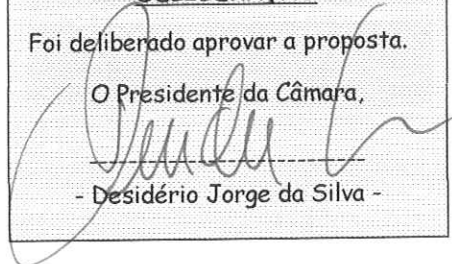 Foi deliberado aprovar a proposta.
O Presidente da Câmara,
- Desidério Jorge da Silva -